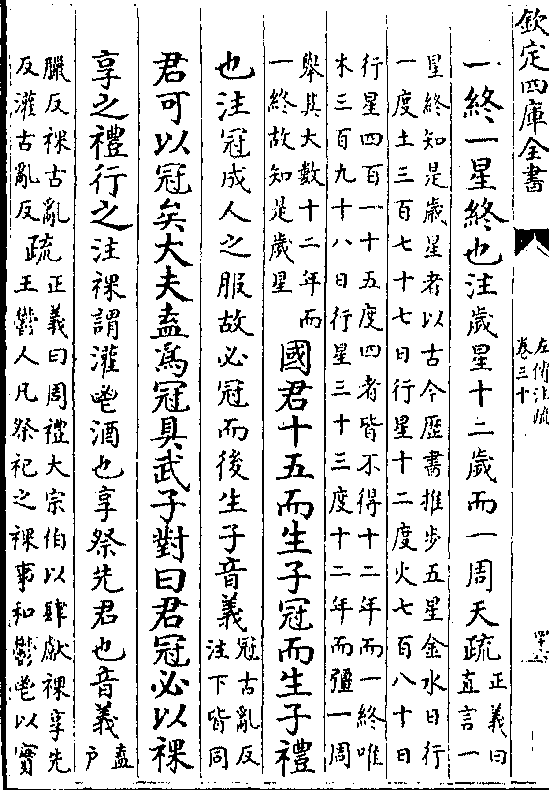 欽定四庫全書
左傳注疏
卷三十
一終一星終也注歲星十二歲而一周天疏
正義曰
直言一
星終知是歲星者以古今歷書推步五星金水日行
一度土三百七十七日行星十二度火七百八十日
行星四百一十五度四者皆不得十二年而一終唯
木三百九十八日行星三十三度十二年而彊一周
舉其大數十二年而
一終故知是歲星
國君十五而生子冠而生子禮
也注冠成人之服故必冠而後生子音義
冠古亂反
注下皆同
君可以冠矣大夫盍為冠具武子對曰君冠必以祼
享之禮行之注祼謂灌鬯酒也享祭先君也音義
盍
戶
臘反祼古亂
反灌古亂反
疏
正義曰周禮大宗伯以肆獻祼享先
王鬱人凡祭祀之祼事和鬱鬯以實